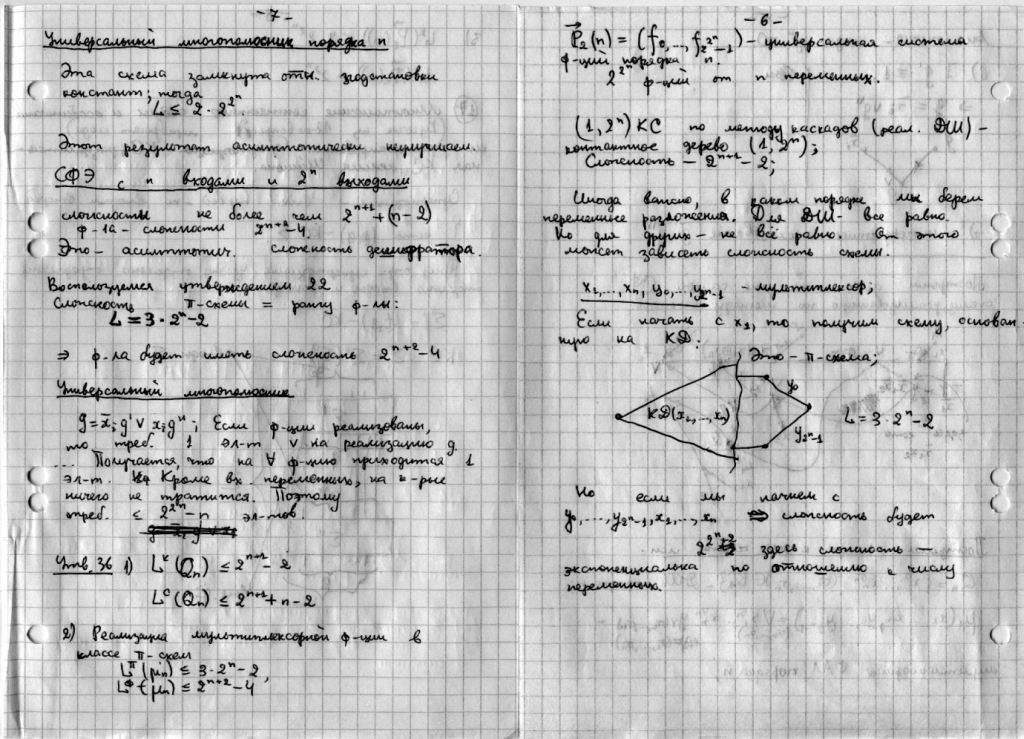 -7-
Универсальный многополюсник порядка n
Эта схема замкнута отн. подстановки
констант; тогда
L ≤ 2·2^{2^n}
Этот результат асимптотически неулучшаем.
СФЭ с n входами и 2^n выходами
сложность не более чем 2^{n+1}+(n-2)
ф-ла- сложности 2^{n+2}-4
Это- асимптотич. сложность дешифратора.
Воспользуемся утверждением 22
Сложность π-схемы = рангу ф-лы:
L = 3·2^n-2
⇒ ф-ла будет иметь сложность 2^{n+2}-4
Универсальный многополюсник
g = x̄_i g' ∨ x_i g''; Если ф-ции реализованы,
то треб. 1 эл-т ∨ на реализацию g.
... Получается, что на ∀ ф-цию приходится 1
эл-т. Кроме вх. переменных, на к-рые
ничего не тратится. Поэтому
треб. ≤ 2^{2^n}-n эл-тов.
Утв. 36 1) L^K(Q_n) ≤ 2^{n+1}-2
L^C(Q_n) ≤ 2^{n+1}+n-2
2) Реализация мультиплексорной ф-ции в
классе π-схем
L^π(μ_n) ≤ 3·2^n-2,
L^Ф(μ_n) ≤ 2^{n+2}-4
-6-
P⃗_2(n) = (f_0,..., f_{2^{2^n}-1}) - универсальная система
ф-ций порядка n.
2^{2^n} ф-ций от n переменных.
(1, 2^n) КС по методу каскадов (реал. ДШ) -
контактное дерево (1, 2^n);
Сложность - 2^{n+1}-2;
Иногда важно, в каком порядке мы берем
переменные разложения. Для ДШ- все равно.
Но для других - не всё равно. От этого
может зависеть сложность схемы.
x_1,..., x_n, y_0,..., y_{2^n-1} - мультиплексор;
Если начать с x_1, то получим схему, основан
ную на КД:
Это - π-схема;
КД(x_1,...,x_n)
y_0
y_{2^n-1}
L = 3·2^n-2
Но если мы начнем с
y_0,..., y_{2^n-1}, x_1,..., x_n ⇒ сложность будет
2^{2^n} здесь сложность -
экспоненциальна по отношению к числу
переменных.